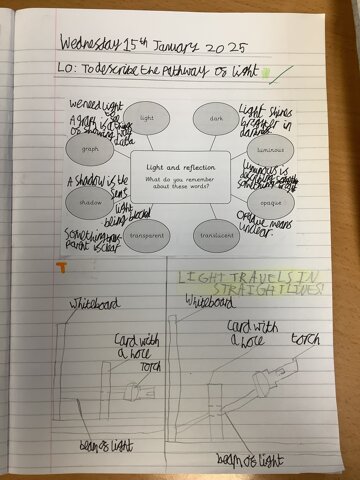 Wednesday 15th January 2025
LO: To describe the pathway of light
we need light
to see things
light
dark
Light shines
brighter in
darkness
A graph is a
way of showing data
graph
Light and reflection
What do you remember
about these words?
luminous
Luminous is
something
A shadow is the
suns
light
being blocked
shadow
opaque
Opaque means
unclear.
something trans-
parent is clear
transparent
translucent
T
LIGHT TRAVELS IN
STRAIGHT LINES!
Whiteboard
Card with
a hole
torch
beam of light
Whiteboard
Card with
a hole
torch
beam of light